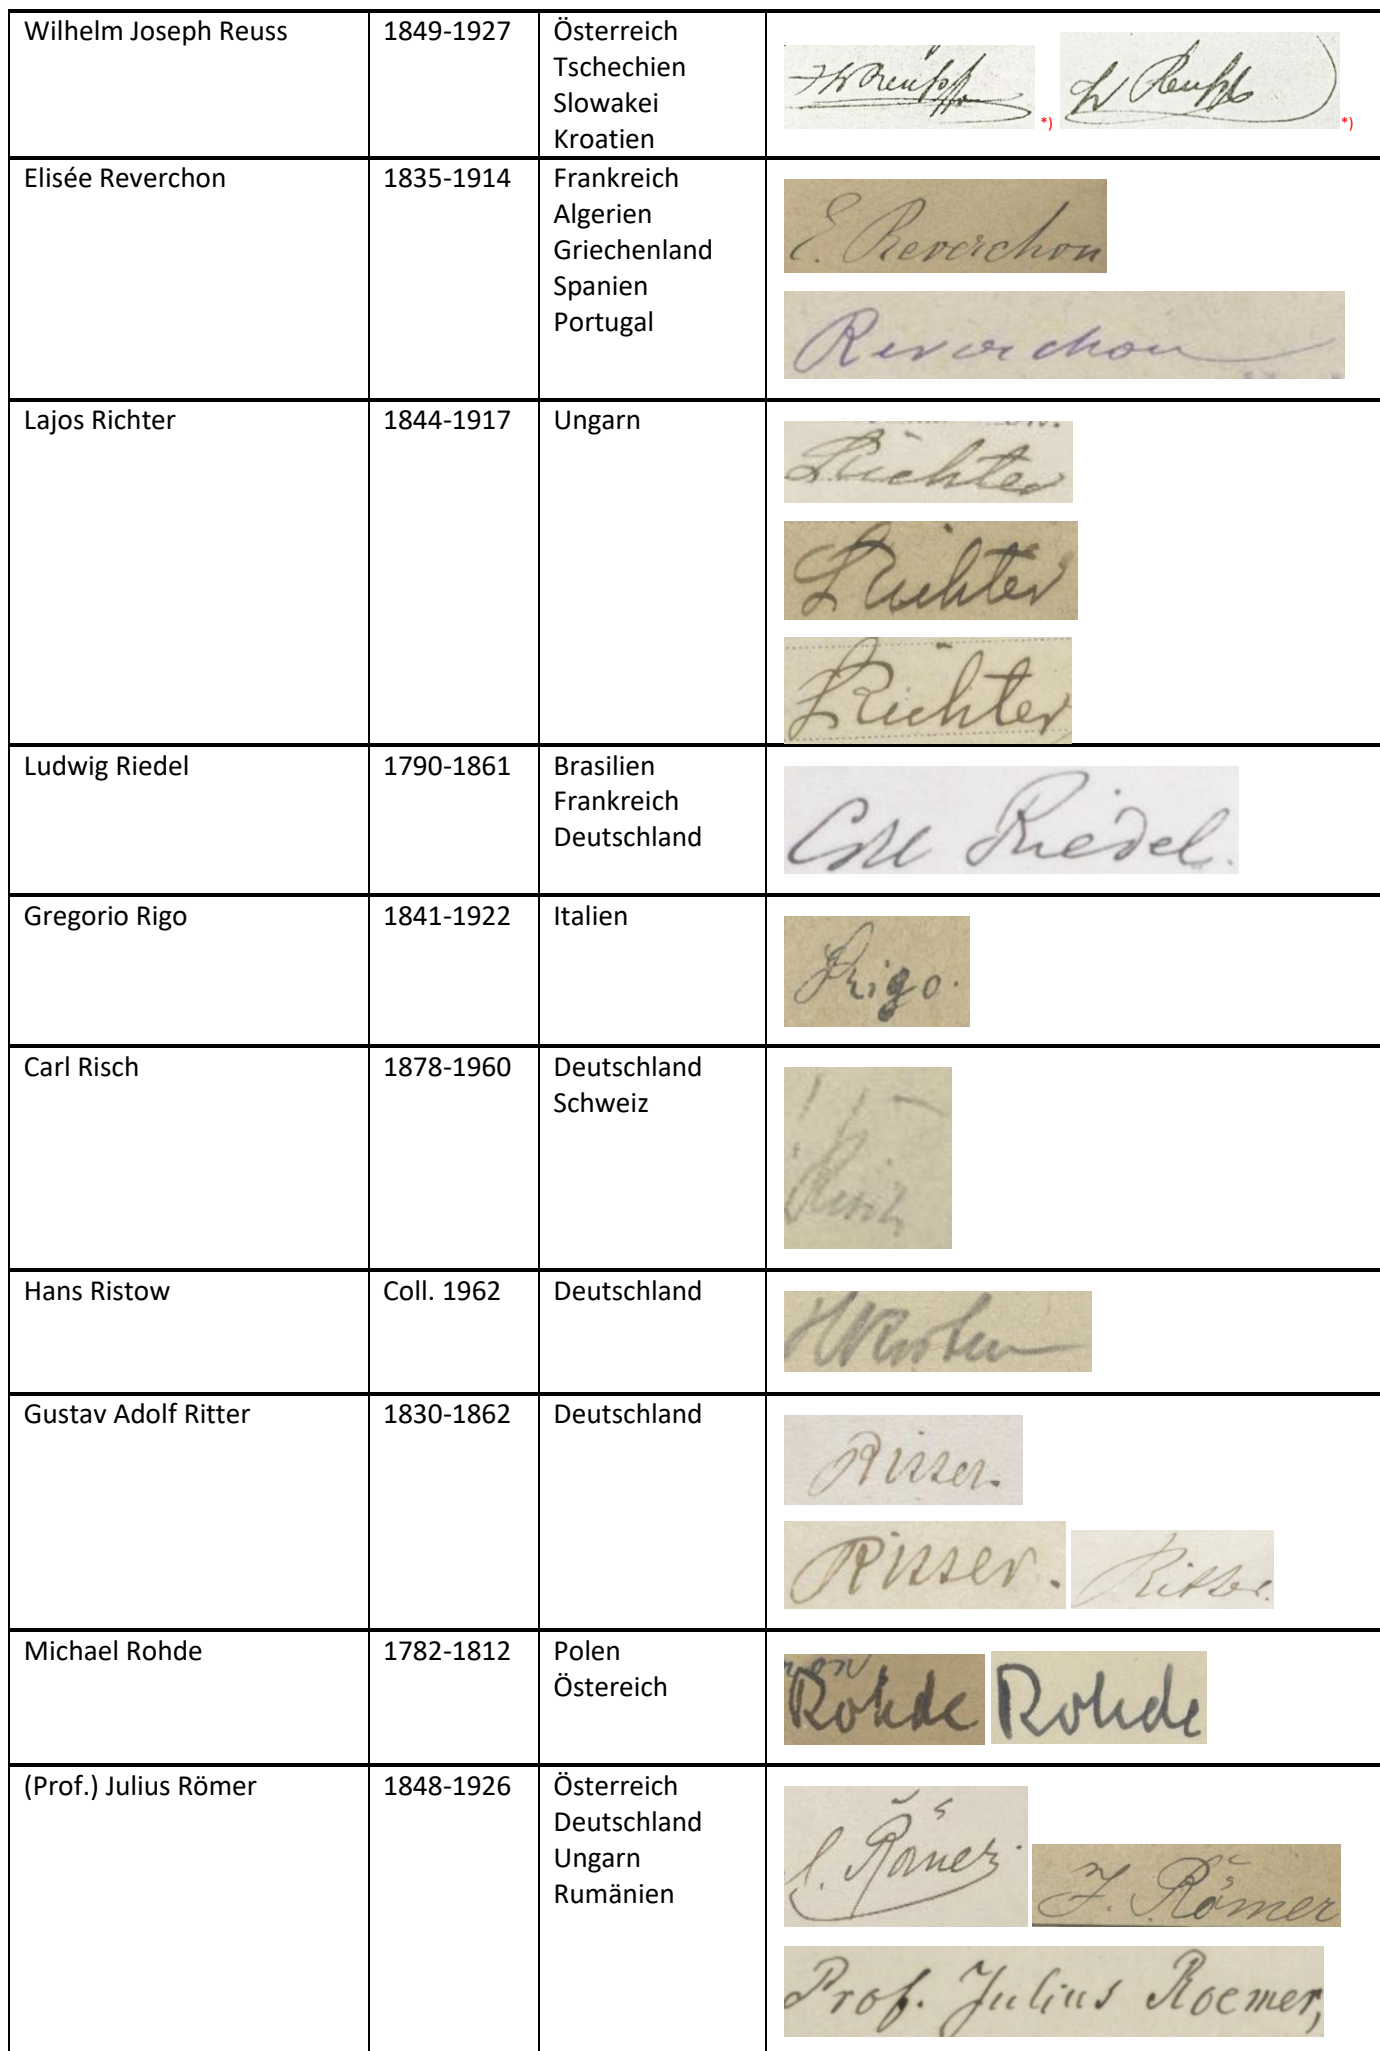 Wilhelm Joseph Reuss 1849-1927 Österreich
Tschechien
Slowakei
Kroatien
*) *)
Elisée Reverchon 1835-1914 Frankreich
Algerien
Griechenland
Spanien
Portugal
E. Reverchon
Reverchon
Lajos Richter 1844-1917 Ungarn
LRichter
LRichter
LRichter
Ludwig Riedel 1790-1861 Brasilien
Frankreich
Deutschland
Coll Riedel.
Gregorio Rigo 1841-1922 Italien
Rigo.
Carl Risch 1878-1960 Deutschland
Schweiz
Risch
Hans Ristow Coll. 1962 Deutschland
Gustav Adolf Ritter 1830-1862 Deutschland
Ritter.
Ritter. Ritter.
Michael Rohde 1782-1812 Polen
Östereich
Rohde Rohde
(Prof.) Julius Römer 1848-1926 Österreich
Deutschland
Ungarn
Rumänien
J. Römer J. Römer
Prof. Julius Roemer,